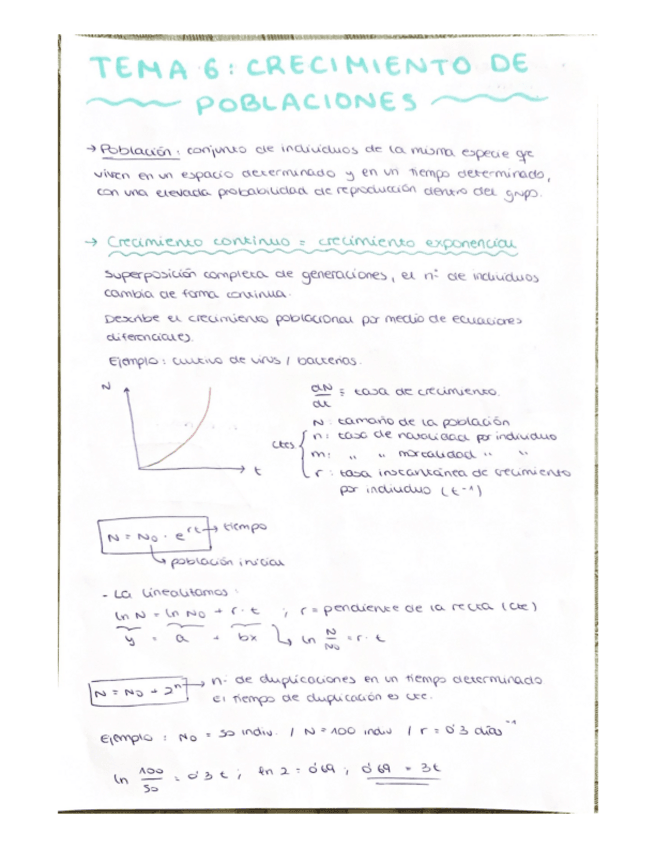 TEMA 6: CRECIMIENTO DE
POBLACIONES
→ Población: conjunto de individuos de la misma especie que
viven en un espacio determinado y en un tiempo determinado,
con una elevada probabilidad de reproducción dentro del grupo.
→ Crecimiento continuo = crecimiento exponencial
Superposición completa de generaciones, el nº de individuos
cambia de forma continua.
Describe el crecimiento poblacional por medio de ecuaciones
diferenciales.
Ejemplo: cultivo de virus / bacterias.
N
t
dN/dt = tasa de crecimiento.
N: tamaño de la población
ctes
n: tasa de natalidad por individuo
m: " " mortalidad " "
r: tasa instantánea de crecimiento
por individuo (t⁻¹)
N = N₀ · e^rt → tiempo
→ población inicial
- La linealitamos:
ln N = ln N₀ + r · t ; r = pendiente de la recta (cte)
y = a + bx → ln N/N₀ = r · t
N = N₀ + 2ⁿ → nº de duplicaciones en un tiempo determinado
El tiempo de duplicación es cte.
Ejemplo: N₀ = 50 indiv. / N = 100 indiv / r = 0'3 días⁻¹
ln 100/50 = 0'3 t ; ln 2 = 0'69 ; 0'69 = 3t